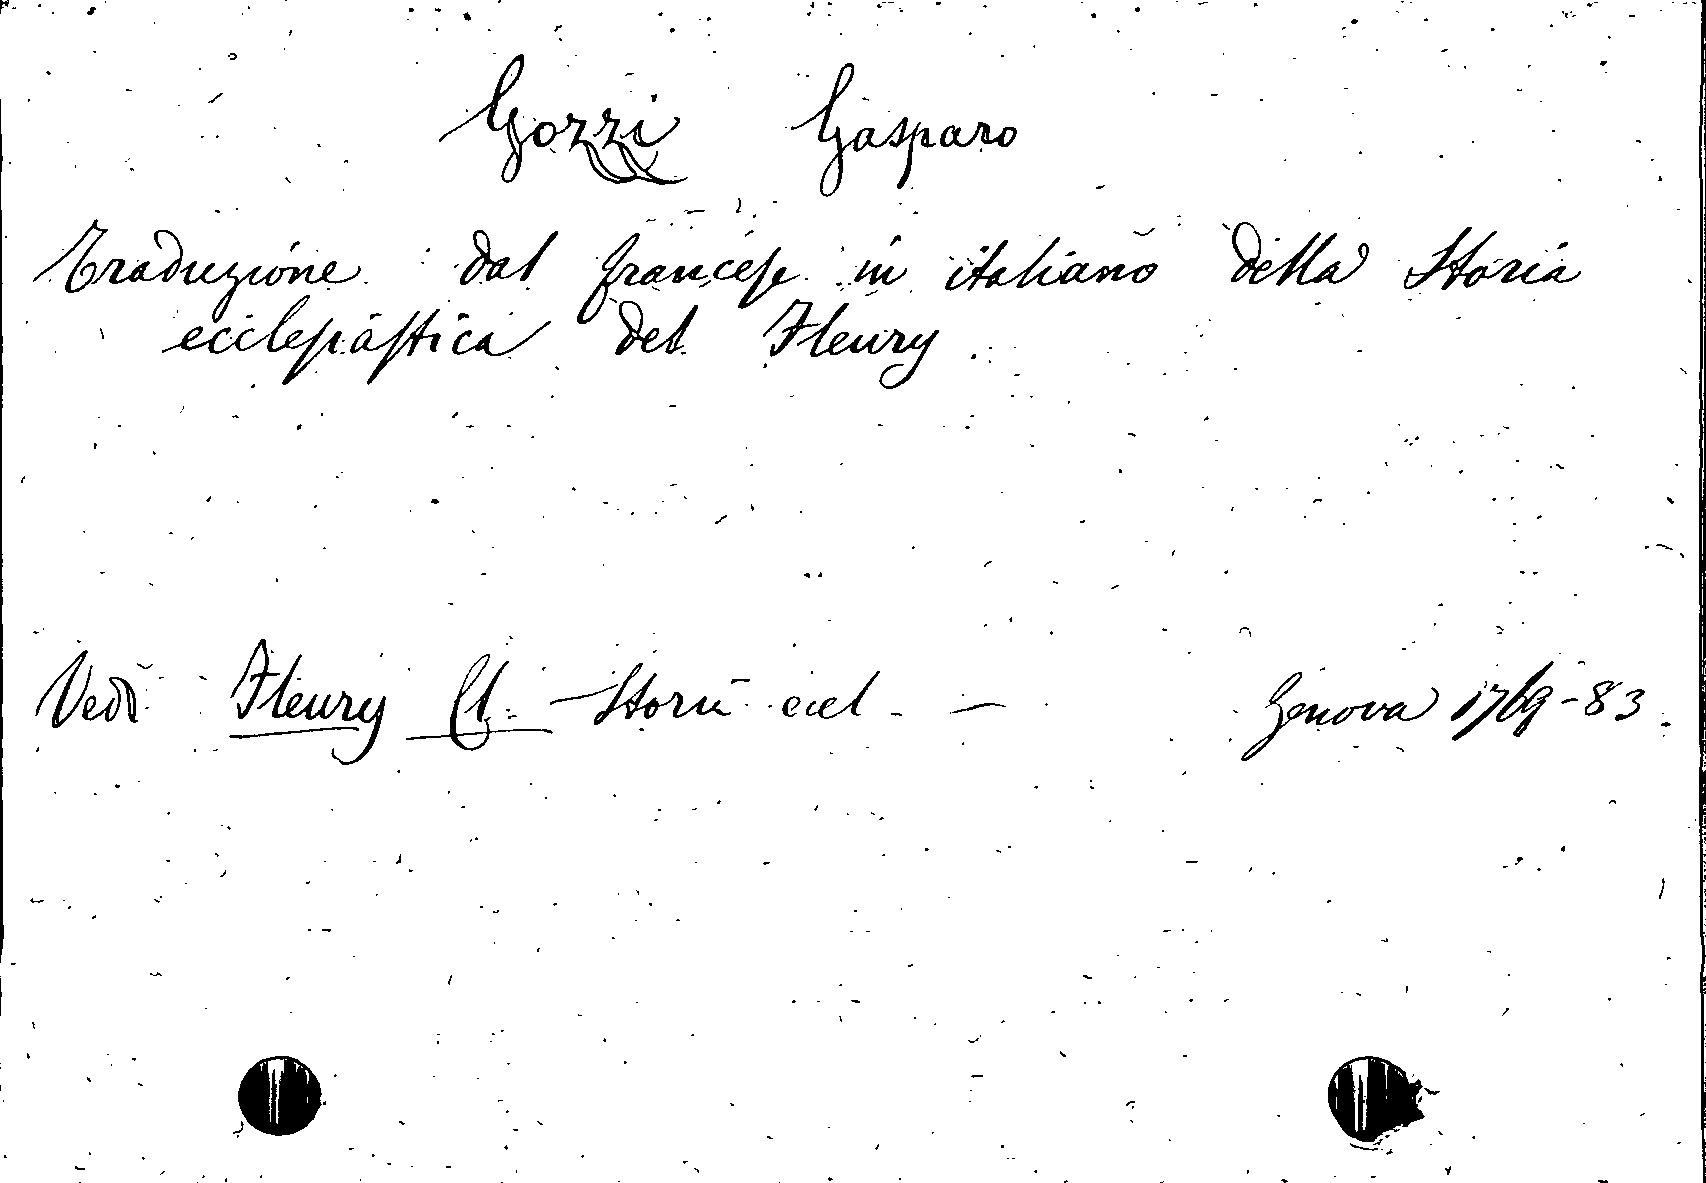 Gozzi Gasparo
Traduzione dal francese in italiano della Storia
ecclesiastica del Fleury
Vedi Fleury Cl. - Storia eccl. — Genova 1769-83.